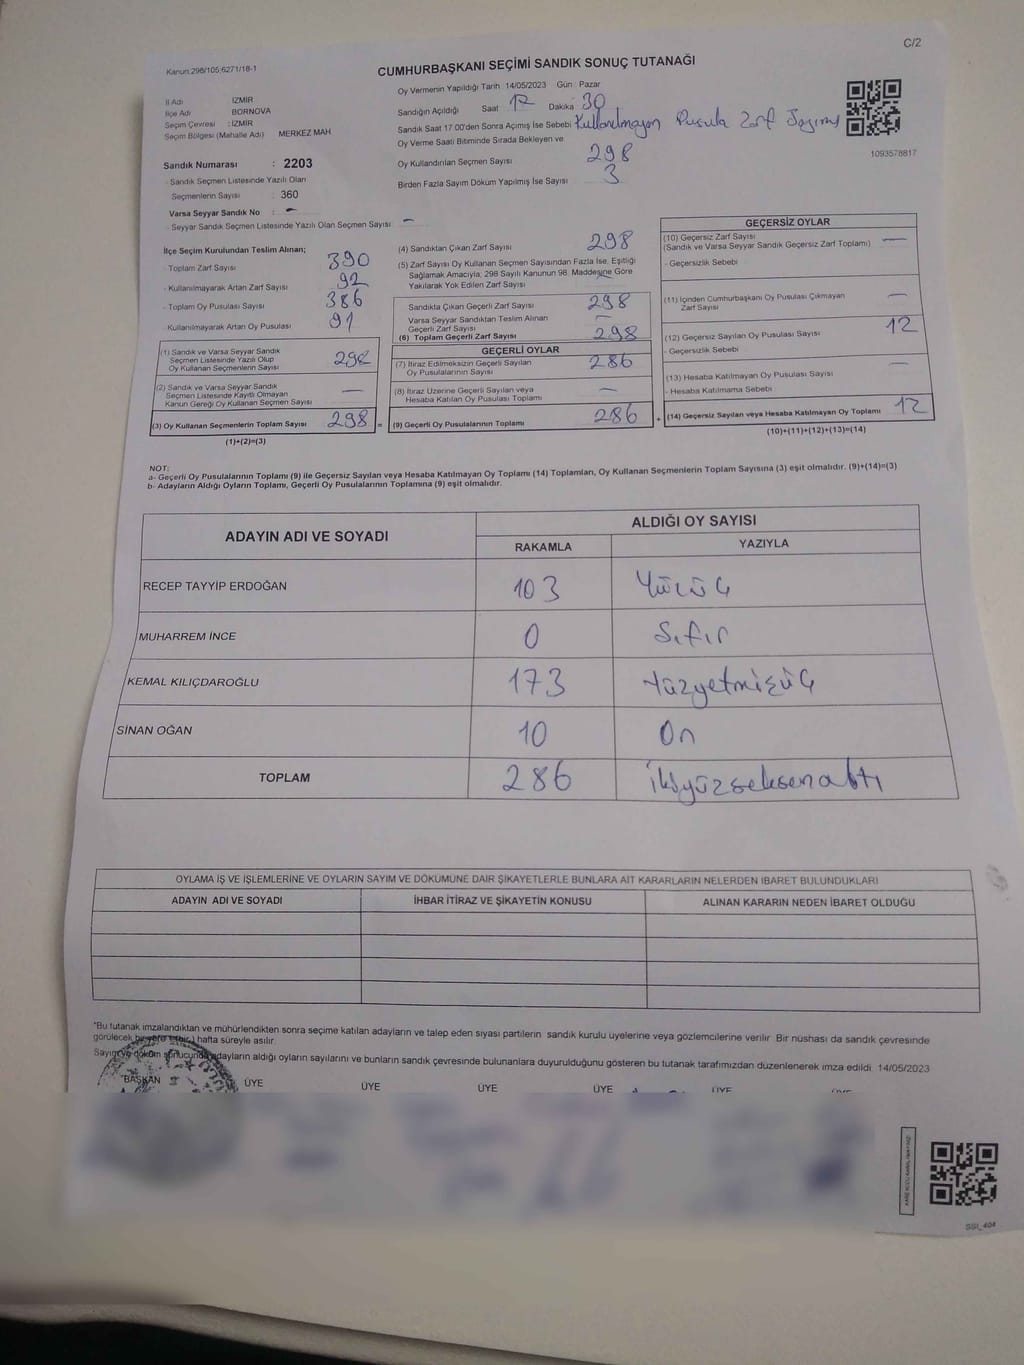 C/2
Kanun:298/105;6271/18-1
CUMHURBAŞKANI SEÇİMİ SANDIK SONUÇ TUTANAĞI
İl Adı : İZMİR
İlçe Adı : BORNOVA
Seçim Çevresi : İZMİR
Seçim Bölgesi (Mahalle Adı) MERKEZ MAH
Sandık Numarası : 2203
- Sandık Seçmen Listesinde Yazılı Olan
Seçmenlerin Sayısı : 360
Varsa Seyyar Sandık No : -
- Seyyar Sandık Seçmen Listesinde Yazılı Olan Seçmen Sayısı -
Oy Vermenin Yapıldığı Tarih :14/05/2023 Gün : Pazar
Sandığın Açıldığı Saat 17 Dakika : 30
Sandık Saat 17:00'den Sonra Açımış İse Sebebi Kullanılmayan Pusula Zarf Sayımı
Oy Verme Saati Bitiminde Sırada Bekleyen ve
Oy Kullandırılan Seçmen Sayısı 298
Birden Fazla Sayım Döküm Yapılmış İse Sayısı 3
1093578817
İlçe Seçim Kurulundan Teslim Alınan;
- Toplam Zarf Sayısı 390
- Kullanılmayarak Artan Zarf Sayısı 92
- Toplam Oy Pusulası Sayısı 386
- Kullanılmayarak Artan Oy Pusulası 91
(1) Sandık ve Varsa Seyyar Sandık
Seçmen Listesinde Yazılı Olup
Oy Kullanan Seçmenlerin Sayısı 298
(2) Sandık ve Varsa Seyyar Sandık
Seçmen Listesinde Kayıtlı Olmayan
Kanun Gereği Oy Kullanan Seçmen Sayısı -
(3) Oy Kullanan Seçmenlerin Toplam Sayısı 298 =
(1)+(2)=(3)
(4) Sandıktan Çıkan Zarf Sayısı 298
(5) Zarf Sayısı Oy Kullanan Seçmen Sayısından Fazla İse, Eşitliği
Sağlamak Amacıyla; 298 Sayılı Kanunun 98. Maddesine Göre
Yakılarak Yok Edilen Zarf Sayısı -
Sandıkta Çıkan Geçerli Zarf Sayısı 298
Varsa Seyyar Sandıktan Teslim Alınan
Geçerli Zarf Sayısı -
(6) Toplam Geçerli Zarf Sayısı 298
GEÇERLİ OYLAR
(7) İtiraz Edilmeksizin Geçerli Sayılan
Oy Pusulalarının Sayısı 286
(8) İtiraz Üzerine Geçerli Sayılan veya
Hesaba Katılan Oy Pusulası Toplamı -
(9) Geçerli Oy Pusulalarının Toplamı 286 +
GEÇERSİZ OYLAR
(10) Geçersiz Zarf Sayısı
(Sandık ve Varsa Seyyar Sandık Geçersiz Zarf Toplamı) -
- Geçersizlik Sebebi
(11) İçinden Cumhurbaşkanı Oy Pusulası Çıkmayan
Zarf Sayısı -
(12) Geçersiz Sayılan Oy Pusulası Sayısı 12
- Geçersizlik Sebebi
(13) Hesaba Katılmayan Oy Pusulası Sayısı -
- Hesaba Katılmama Sebebi
(14) Geçersiz Sayılan veya Hesaba Katılmayan Oy Toplamı 12
(10)+(11)+(12)+(13)=(14)
NOT:
a- Geçerli Oy Pusulalarının Toplamı (9) ile Geçersiz Sayılan veya Hesaba Katılmayan Oy Toplamı (14) Toplamları, Oy Kullanan Seçmenlerin Toplam Sayısına (3) eşit olmalıdır. (9)+(14)=(3)
b- Adayların Aldığı Oyların Toplamı, Geçerli Oy Pusulalarının Toplamına (9) eşit olmalıdır.
ADAYIN ADI VE SOYADI ALDIĞI OY SAYISI
RAKAMLA YAZIYLA
RECEP TAYYİP ERDOĞAN 103 Yüzüç
MUHARREM İNCE 0 Sıfır
KEMAL KILIÇDAROĞLU 173 Yüzyetmişüç
SİNAN OĞAN 10 On
TOPLAM 286 İkiyüzseksenaltı
OYLAMA İŞ VE İŞLEMLERİNE VE OYLARIN SAYIM VE DÖKÜMÜNE DAİR ŞİKAYETLERLE BUNLARA AİT KARARLARIN NELERDEN İBARET BULUNDUKLARI
ADAYIN ADI VE SOYADI İHBAR İTİRAZ VE ŞİKAYETİN KONUSU ALINAN KARARIN NEDEN İBARET OLDUĞU
*Bu tutanak imzalandıktan ve mühürlendikten sonra seçime katılan adayların ve talep eden siyasi partilerin sandık kurulu üyelerine veya gözlemcilerine verilir. Bir nüshası da sandık çevresinde
görülecek bir yere bir hafta süreyle asılır.
Sayım ve döküm sonucunda adayların aldığı oyların sayılarını ve bunların sandık çevresinde bulunanlara duyurulduğunu gösteren bu tutanak tarafımızdan düzenlenerek imza edildi. 14/05/2023
BAŞKAN ÜYE ÜYE ÜYE ÜYE ÜYE
SSI_404